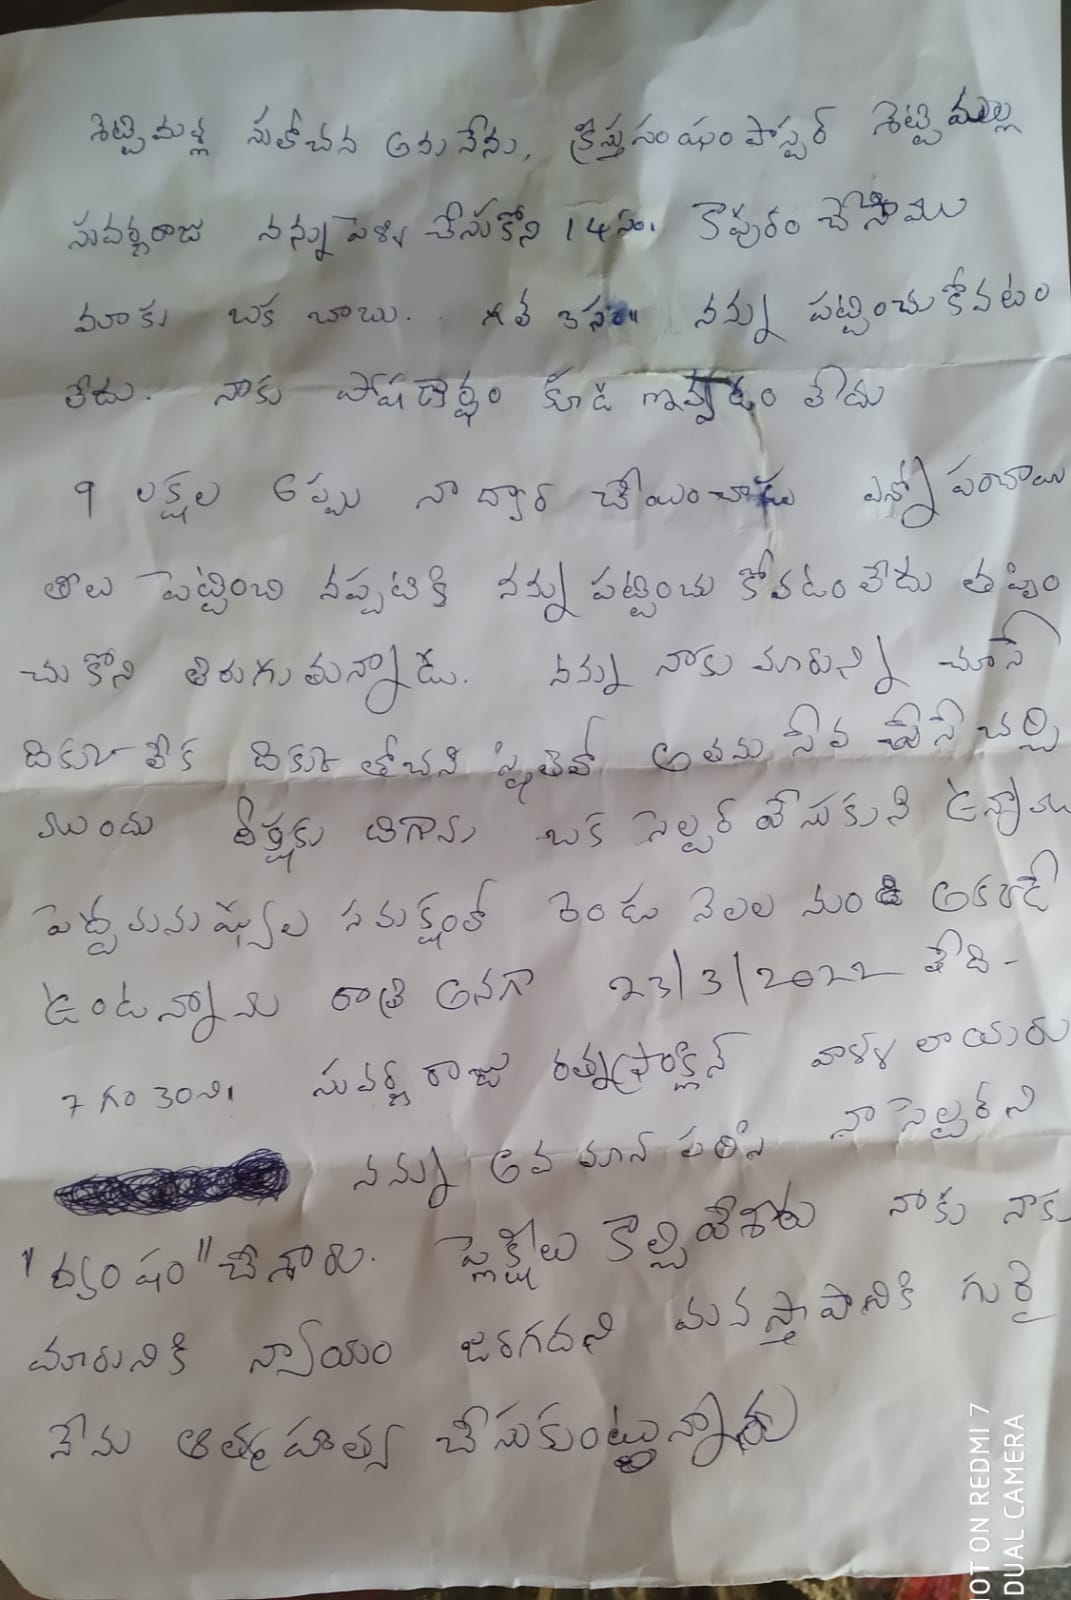 శెట్టిమళ్ల సులోచన అను నేను, క్రీస్తు సంఘం పాస్టర్ శెట్టిమల్లు
సువర్ణరాజు నన్ను పెళ్ళి చేసుకోని 14 సం. కాపురం చేసాము
మాకు ఒక బాబు. గత 3 సం॥ నన్ను పట్టించుకోవటం
లేదు. నాకు పోషణార్థం కూడ ఇవ్వడం లేదు
9 లక్షల అప్పు నా ద్వార చేయించాడు ఎన్నో పంచాయి
తీలు పెట్టించి నప్పటికి నన్ను పట్టించు కోవటం లేదు తప్పిం
చు కోని తిరుగుతున్నాడు. నన్ను నాకు మారున్ని చూసే
దిక్కు లేక దిక్కు తోచని స్థితిలో అతను సేవ చేసే చర్చి
ముందు దీక్షకు దిగాను ఒక సెల్టర్ వేసుకుని ఉన్నాము
పెద్దమనుష్యుల సమక్షంలో రెండు నెలల నుండి అక్కడే
ఉంటన్నాను రాత్రి అనగా 23/3/2022 తేది -
7 గం 30ని, సువర్ణ రాజు రత్నఫ్రాంక్లిన్ వాళ్ళ లాయరు
నన్ను అవమాన పరిసి నా సెల్టర్ ని
"ద్వంషం" చేశారు. ప్లెక్షీలు కాల్చివేశారు నాకు నాకు
మారునికి న్యాయం జరగదని మనస్తాపానికి గురై
నేను ఆత్మహత్య చేసుకుంట్టున్నాను
NOT ON REDMI 7
DUAL CAMERA